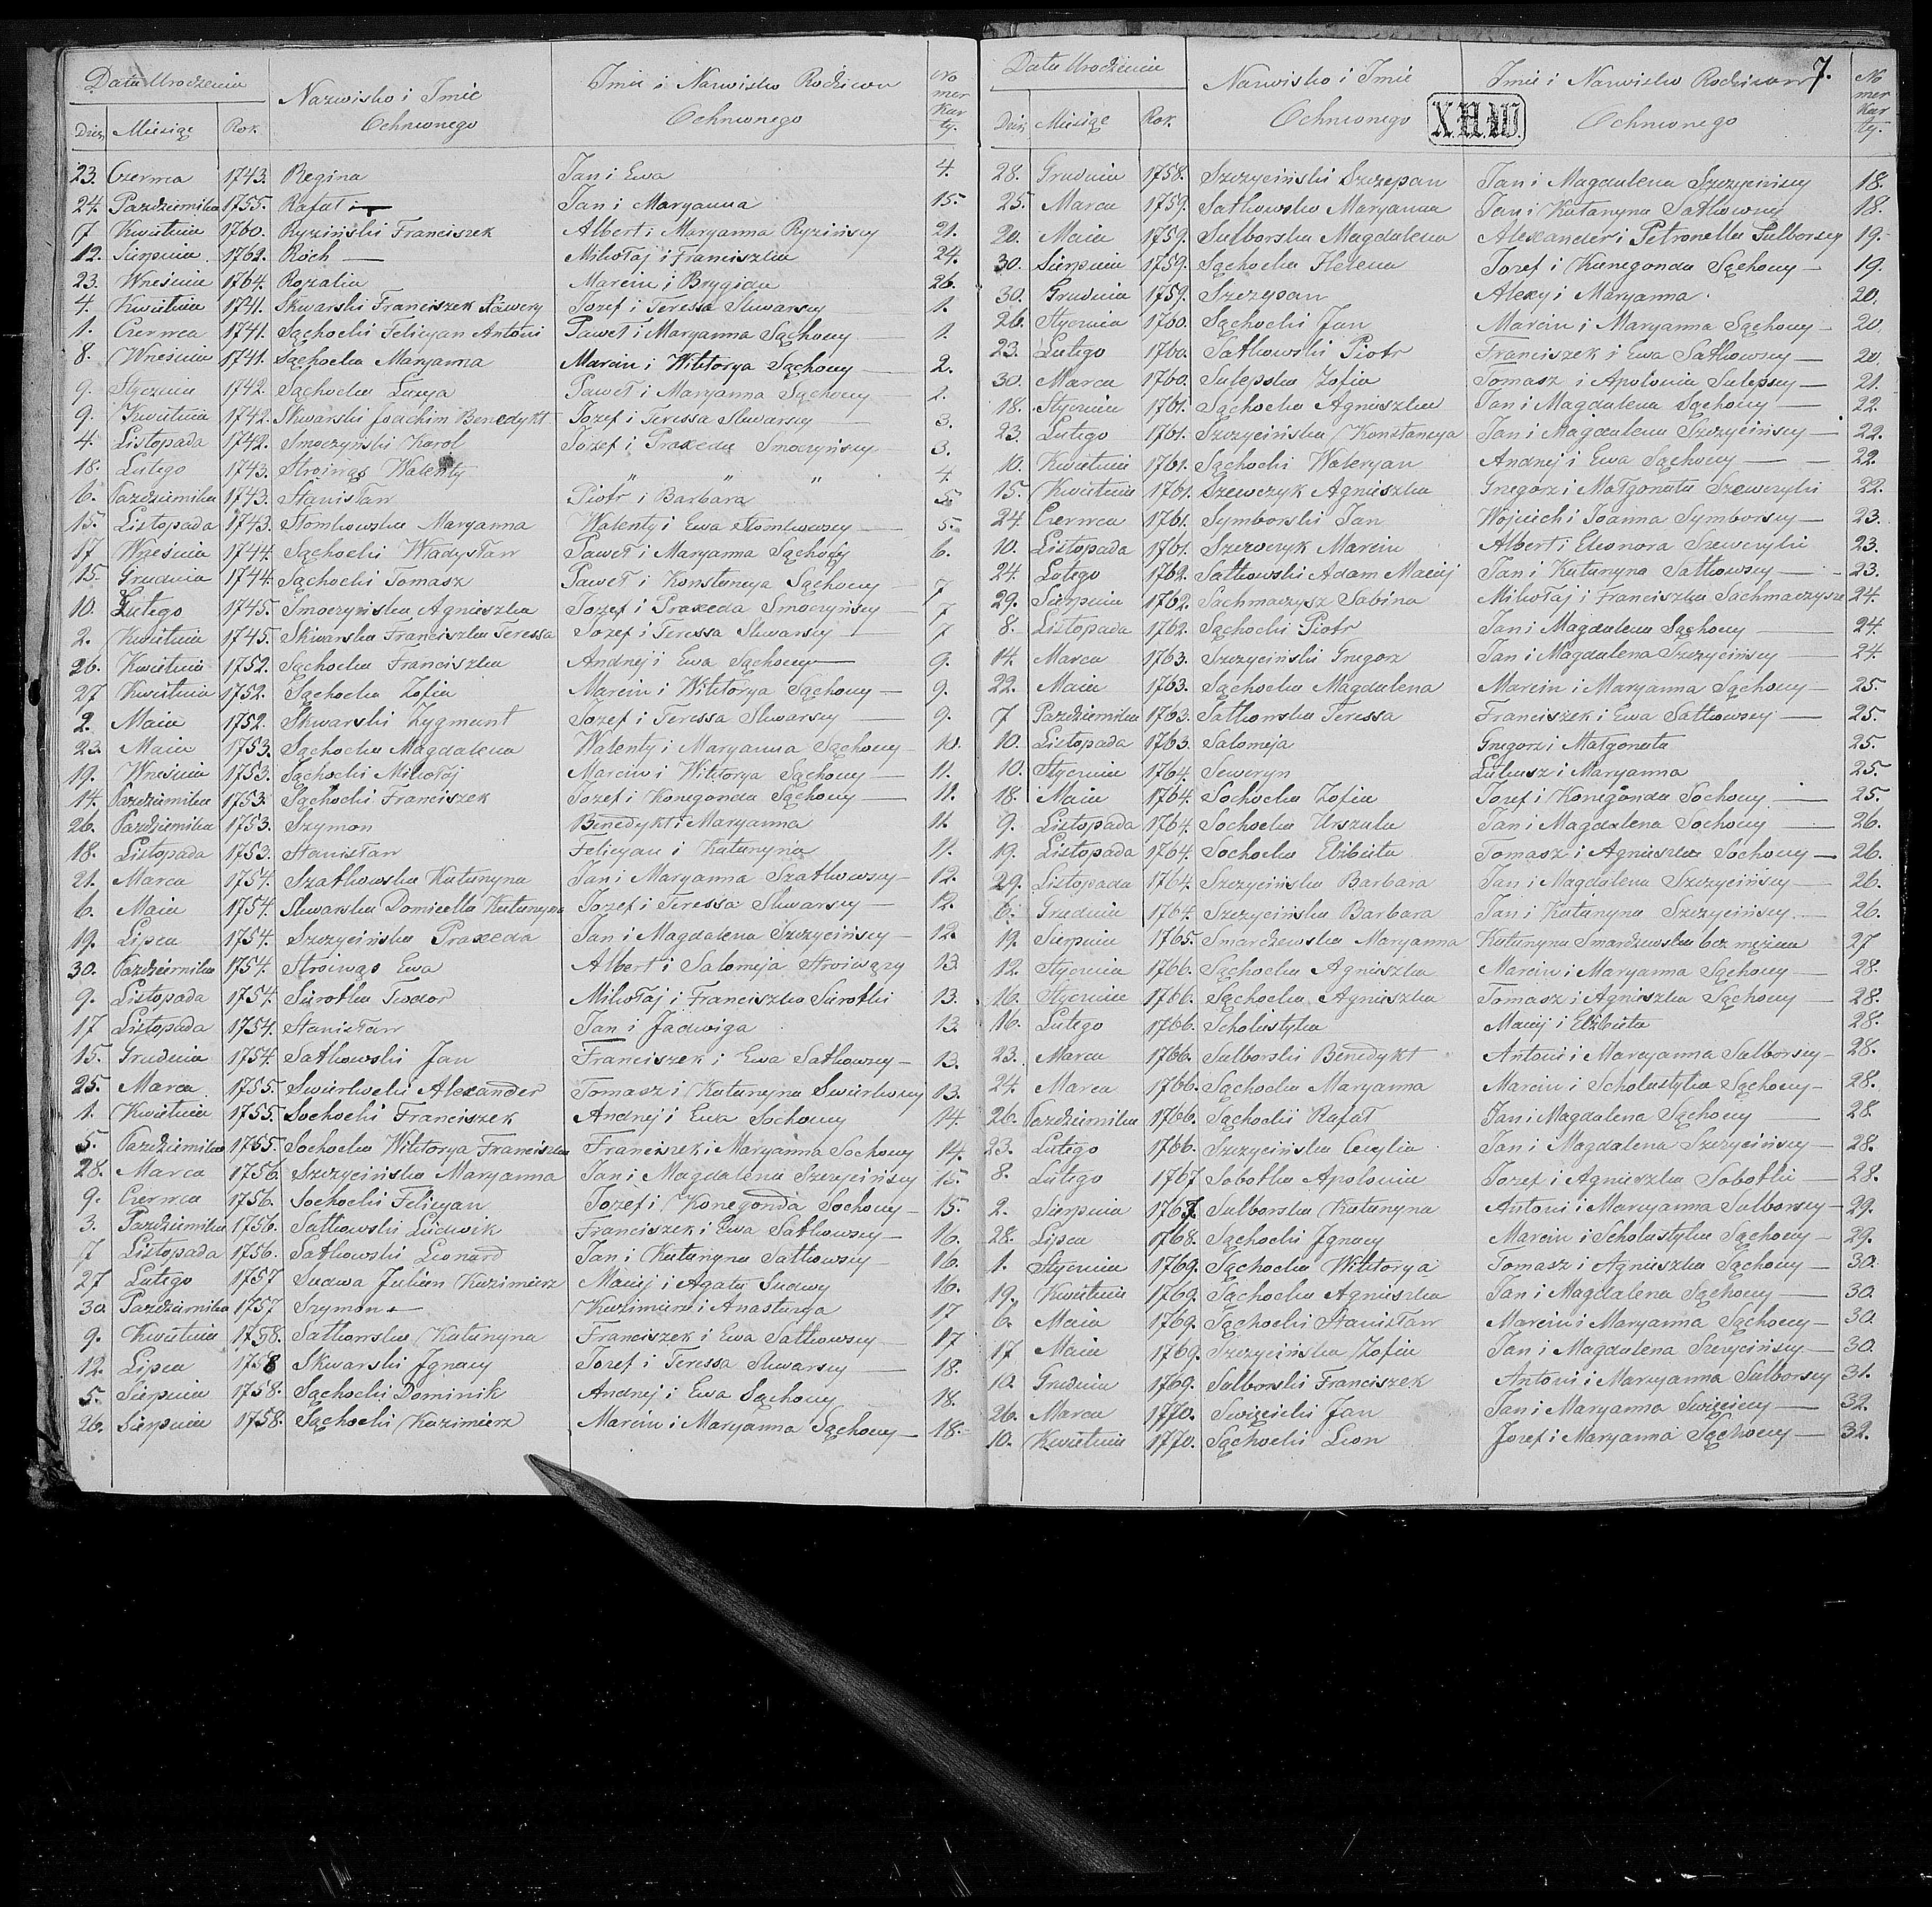 Data Urodzenia
Nazwisko i Imie Ochrconego
Imie i Nazwisko Rodziców Ochrconego
No mer Kar ty.
Dzień Miesiąc Rok
23. Czerwca 1743. Regina Jan i Ewa 4.
24. Pazdziernika 1755. Rafał Jan i Maryanna 15.
7 Kwietnia 1760. Ryziński Franciszek Albert i Maryanna Ryzińscy 21.
12. Sierpnia 1762. Roch — Mikołaj i Franciszka 24.
23. Wrzesnia 1764. Rozalia Marcin i Brygida 26.
4. Kwietnia 1741. Skwarski Franciszek Xawery Jozef i Teressa Skwarscy 1.
1. Czerwca 1741. Sąchocki Felicyan Antoni Paweł i Maryanna Sąchoccy 1.
8. Wrzesnia 1741. Sąchocka Maryanna Marcin i Wiktorya Sąchoccy 2.
9. Stycznia 1742. Sąchocka Lucya Paweł i Maryanna Sąchoccy 2.
9. Kwietnia 1742. Skwarski Joachim Benedykt Jozef i Teressa Skwarscy 3.
4. Listopada 1742. Smoczyński Karol Jozef i Praxeda Smoczyńscy 3.
18. Lutego 1743. Stroiwąs Walenty " " " 4
6. Pazdziernika 1743. Stanisław Piotr i Barbara 5.
15. Listopada 1743. Słomkowska Maryanna Walenty i Ewa Słomkowscy 5.
17 Wrzesnia 1744. Sąchocki Władysław Paweł i Maryanna Sąchoccy 6.
15. Grudnia 1744. Sąchocki Tomasz Paweł i Konstancya Sąchoccy 7
10. Lutego 1745. Smoczyńska Agnieszka Jozef i Praxeda Smoczyńscy 7
2. Kwietnia 1745. Skwarska Franciszka Teressa Jozef i Teressa Skwarscy 7
26. Kwietnia 1752. Sąchocka Franciszka Andrzej i Ewa Sąchoccy 9.
27 Kwietnia 1752. Sąchocka Zofia Marcin i Wiktorya Sąchoccy 9.
2. Maia 1752. Skwarski Zygmunt Jozef i Teressa Skwarscy 9.
23. Maia 1753. Sąchocka Magdalena Walenty i Maryanna Sąchoccy 10.
19. Wrzesnia 1753. Sąchocki Mikołaj Marcin i Wiktorya Sąchoccy 11.
14. Pazdziernika 1753. Sąchocki Franciszek Jozef i Konegonda Sąchoccy 11.
26. Pazdziernika 1753. Szymon Benedykt i Maryanna 11.
18. Listopada 1753. Stanisław Felicyan i Katarzyna 11.
21. Marca 1754. Szatkowska Katarzyna Jan i Maryanna Szatkowscy 12.
6. Maia 1754. Skwarska Domicella Katarzyna Jozef i Teressa Skwarscy 12.
19. Lipca 1754. Szczycińska Praxeda Jan i Magdalena Szczycińscy 12.
30. Pazdziernika 1754. Stroiwąs Ewa Albert i Salomeja Stroiwązy 13.
9. Listopada 1754. Sierotka Teodor Mikołaj i Franciszka Sierotki 13.
17 Listopada 1754. Stanisław Jan i Jadwiga 13.
15. Grudnia 1754. Satkowski Jan Franciszek i Ewa Satkowscy 13.
25. Marca 1755. Swierkocki Alexander Tomasz i Katarzyna Swierkoccy 13.
1. Kwietnia 1755. Sochocki Franciszek Andrzej i Ewa Sochoccy 14.
5. Pazdziernika 1755. Sochocka Wiktorya Franciszka Franciszek i Maryanna Sochoccy 14.
28. Marca 1756. Szczycińska Maryanna Jan i Magdalena Szczycińscy 15.
9. Czerwca 1756. Sochocki Felicyan Jozef i Konegonda Sochoccy 15.
3. Pazdziernika 1756. Satkowski Ludwik Franciszek i Ewa Satkowscy 16.
7 Listopada 1756. Satkowski Leonard Jan i Katarzyna Satkowscy 16.
27 Lutego 1757 Sudwa Julian Kazimierz Maciej i Agata Sudwy 16.
30. Pazdziernika 1757 Szymon Kazimierz i Anastazya 17
9. Kwietnia 1758. Satkowska Katarzyna Franciszek i Ewa Satkowscy 17
12. Lipca 1758 Skwarski Ignacy Jozef i Teressa Skwarscy 18.
5. Sierpnia 1758. Sąchocki Dominik Andrzej i Ewa Sąchoccy 18.
26. Sierpnia 1758. Sąchocki Kazimierz Marcin i Maryanna Sąchoccy 18.
7.
Data Urodzenia
Nazwisko i Imie Ochrconego
X.H.W.
Imie i Nazwisko Rodziców Ochrconego
No mer Kar ty.
Dzień Miesiąc Rok.
28. Grudnia 1758. Szczyciński Szczepan Jan i Magdalena Szczycińscy 18.
25. Marca 1759. Satkowska Maryanna Jan i Katarzyna Satkowscy 18.
20. Maia 1759. Sulborska Magdalena Alexander i Petronella Sulborscy 19.
30. Sierpnia 1759. Sąchocka Helena Jozef i Kunegonda Sąchoccy 19.
30. Grudnia 1759. Szczepan Alexy i Maryanna 20.
26. Stycznia 1760. Sąchocki Jan Marcin i Maryanna Sąchoccy 20.
23. Lutego 1760. Satkowski Piotr Franciszek i Ewa Satkowscy 20
30. Marca 1760. Sulepska Zofia Tomasz i Apolonia Sulepscy 21.
18. Stycznia 1761. Sąchocka Agnieszka Jan i Magdalena Sąchoccy 22.
23. Lutego 1761. Szczycińska Konstancya Jan i Magdalena Szczycińscy 22.
10. Kwietnia 1761. Sąchocki Waleryan Andrzej i Ewa Sąchoccy 22.
15. Kwietnia 1761. Szewczyk Agnieszka Gregorz i Małgorzata Szewczyki 22.
24. Czerwca 1761. Symborski Jan Wojciech i Joanna Symborscy 23.
10. Listopada 1761. Szewczyk Marcin Albert i Eleonora Szewczyki 23.
24. Lutego 1762. Satkowski Adam Maciej Jan i Katarzyna Satkowscy 23.
29. Sierpnia 1762. Sachmaczysz Sabina Mikołaj i Franciszka Sachmaczysze 24.
8. Listopada 1762. Sąchocki Piotr Jan i Magdalena Sąchoccy 24.
14. Marca 1763. Szczyciński Gregorz Jan i Magdalena Szczycińscy 24.
22. Maia 1763. Sąchocka Magdalena Marcin i Maryanna Sąchoccy 25.
7 Pazdziernika 1763. Satkowska Teressa Franciszek i Ewa Satkowscy 25.
10. Listopada 1763. Salomeja Gregorz i Małgorzata 25.
10. Stycznia 1764. Seweryn Łukasz i Maryanna 25.
18. Maia 1764. Sochocka Zofia Jozef i Konegonda Sochoccy 25.
9. Listopada 1764. Sochocka Urszula Jan i Magdalena Sochoccy 26.
19. Listopada 1764. Sochocka Elżbieta Tomasz i Agnieszka Sochoccy 26.
29. Listopada 1764. Szczycińska Barbara Jan i Magdalena Szczycińscy 26.
6. Grudnia 1764. Szczycińska Barbara Jan i Katarzyna Szczycińscy 26.
19. Sierpnia 1765. Smardzewska Maryanna Katarzyna Smardzewska bez mężna 27
12. Stycznia 1766. Sąchocka Agnieszka Marcin i Maryanna Sąchoccy 28.
16. Stycznia 1766. Sąchocka Agnieszka Tomasz i Agnieszka Sąchoccy 28.
16. Lutego 1766. Scholastyka Maciej i Elżbieta 28.
23. Marca 1766. Sulborski Benedykt Antoni i Maryanna Sulborscy 28.
24. Marca 1766. Sąchocka Maryanna Marcin i Scholastyka Sąchoccy 28.
26. Pazdziernika 1766. Sąchocki Rafał Jan i Magdalena Sąchoccy 28.
23. Lutego 1766. Szczycińska Cecylia Jan i Magdalena Szczycińscy 28.
8. Lutego 1767 Sobotka Apolonia Jozef i Agnieszka Sobotki 28.
2. Sierpnia 1767. Sulborska Katarzyna Antoni i Maryanna Sulborscy 29.
28. Lipca 1768. Sąchocki Ignacy Marcin i Scholastyka Sąchoccy 29.
1. Stycznia 1769. Sąchocka Wiktorya Tomasz i Agnieszka Sąchoccy 30.
19. Kwietnia 1769. Sąchocka Agnieszka Jan i Magdalena Sąchoccy 30.
6. Maia 1769. Sąchocki Stanisław Marcin i Maryanna Sąchoccy 30.
17 Maia 1769. Szczycińska Zofia Jan i Magdalena Szczycińscy 30.
10. Grudnia 1769. Sulborski Franciszek Antoni i Maryanna Sulborscy 31.
26. Marca 1770. Swięcicki Jan Jan i Maryanna Swięciccy 32.
10. Kwietnia 1770. Sąchocki Leon Jozef i Maryanna Sąchoccy 32.